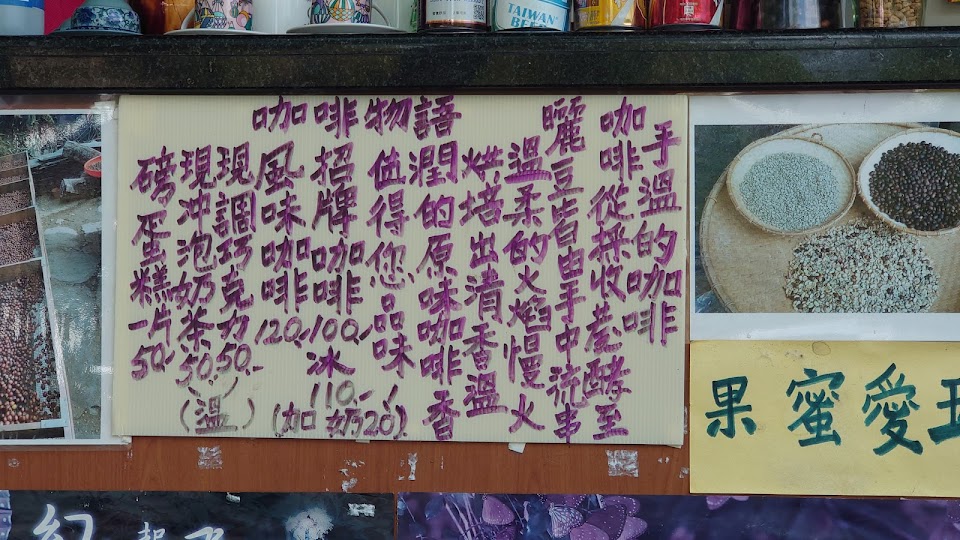 TAIWAN
BEER
咖啡物語
手溫的咖啡
咖啡從採收發酵至
曬豆皆由手中流串
溫柔的火焰慢火
烘培出清香溫
潤的原味咖啡香
值得您品味
招牌咖啡100.-
冰110.-
(加奶20)
風味咖啡120.-
現調巧克力50.-
現沖泡奶茶50.-
(溫)
磅蛋糕一片50.-
果蜜愛玉
幻